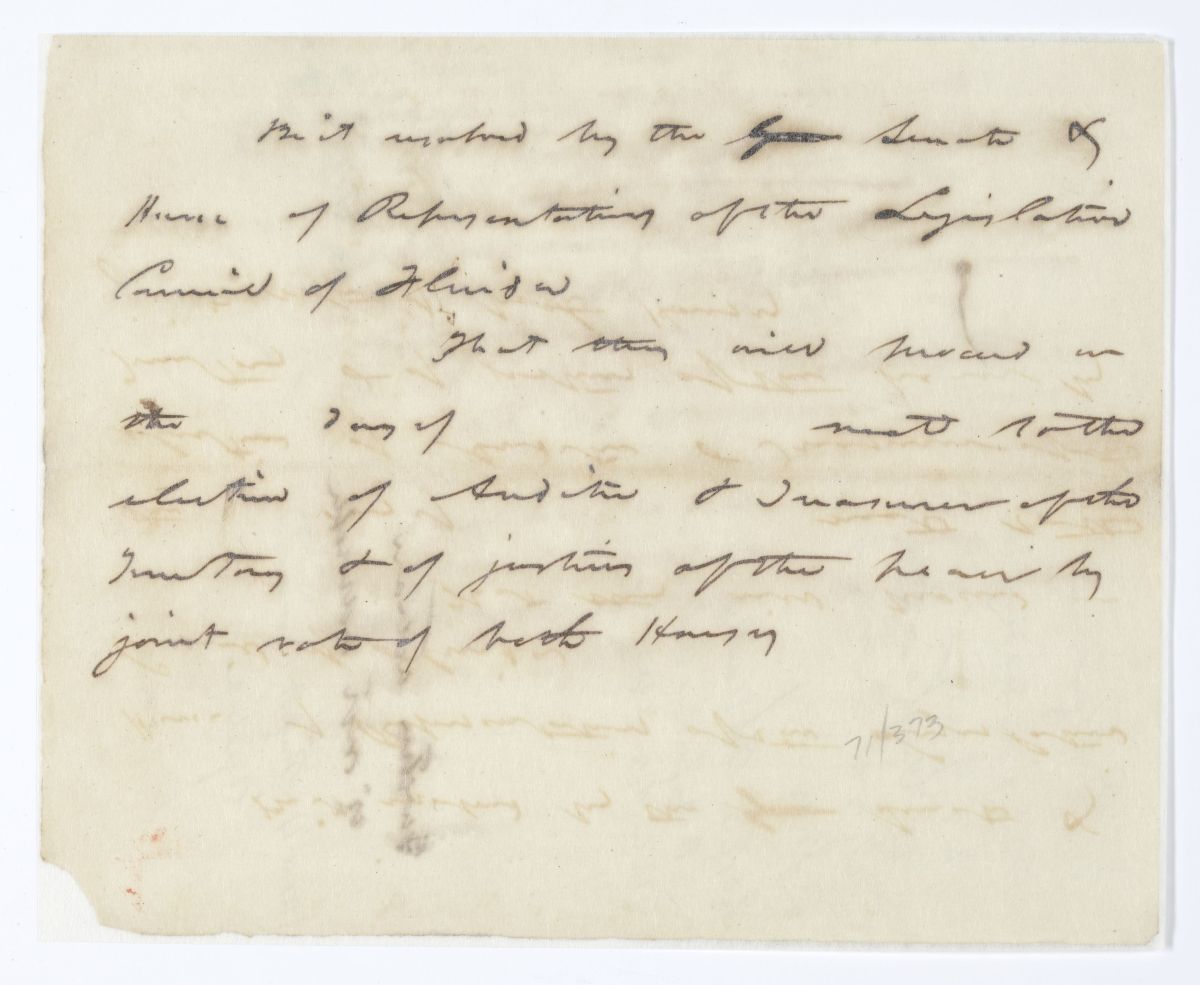 Be it resolved by the Senate &
House of Representatives of the Legislative
Council of Florida
That they will proceed on
the day of next to the
election of Auditor & Treasurer of the
Territory & of justices of the peace by
joint vote of both Houses
71/373